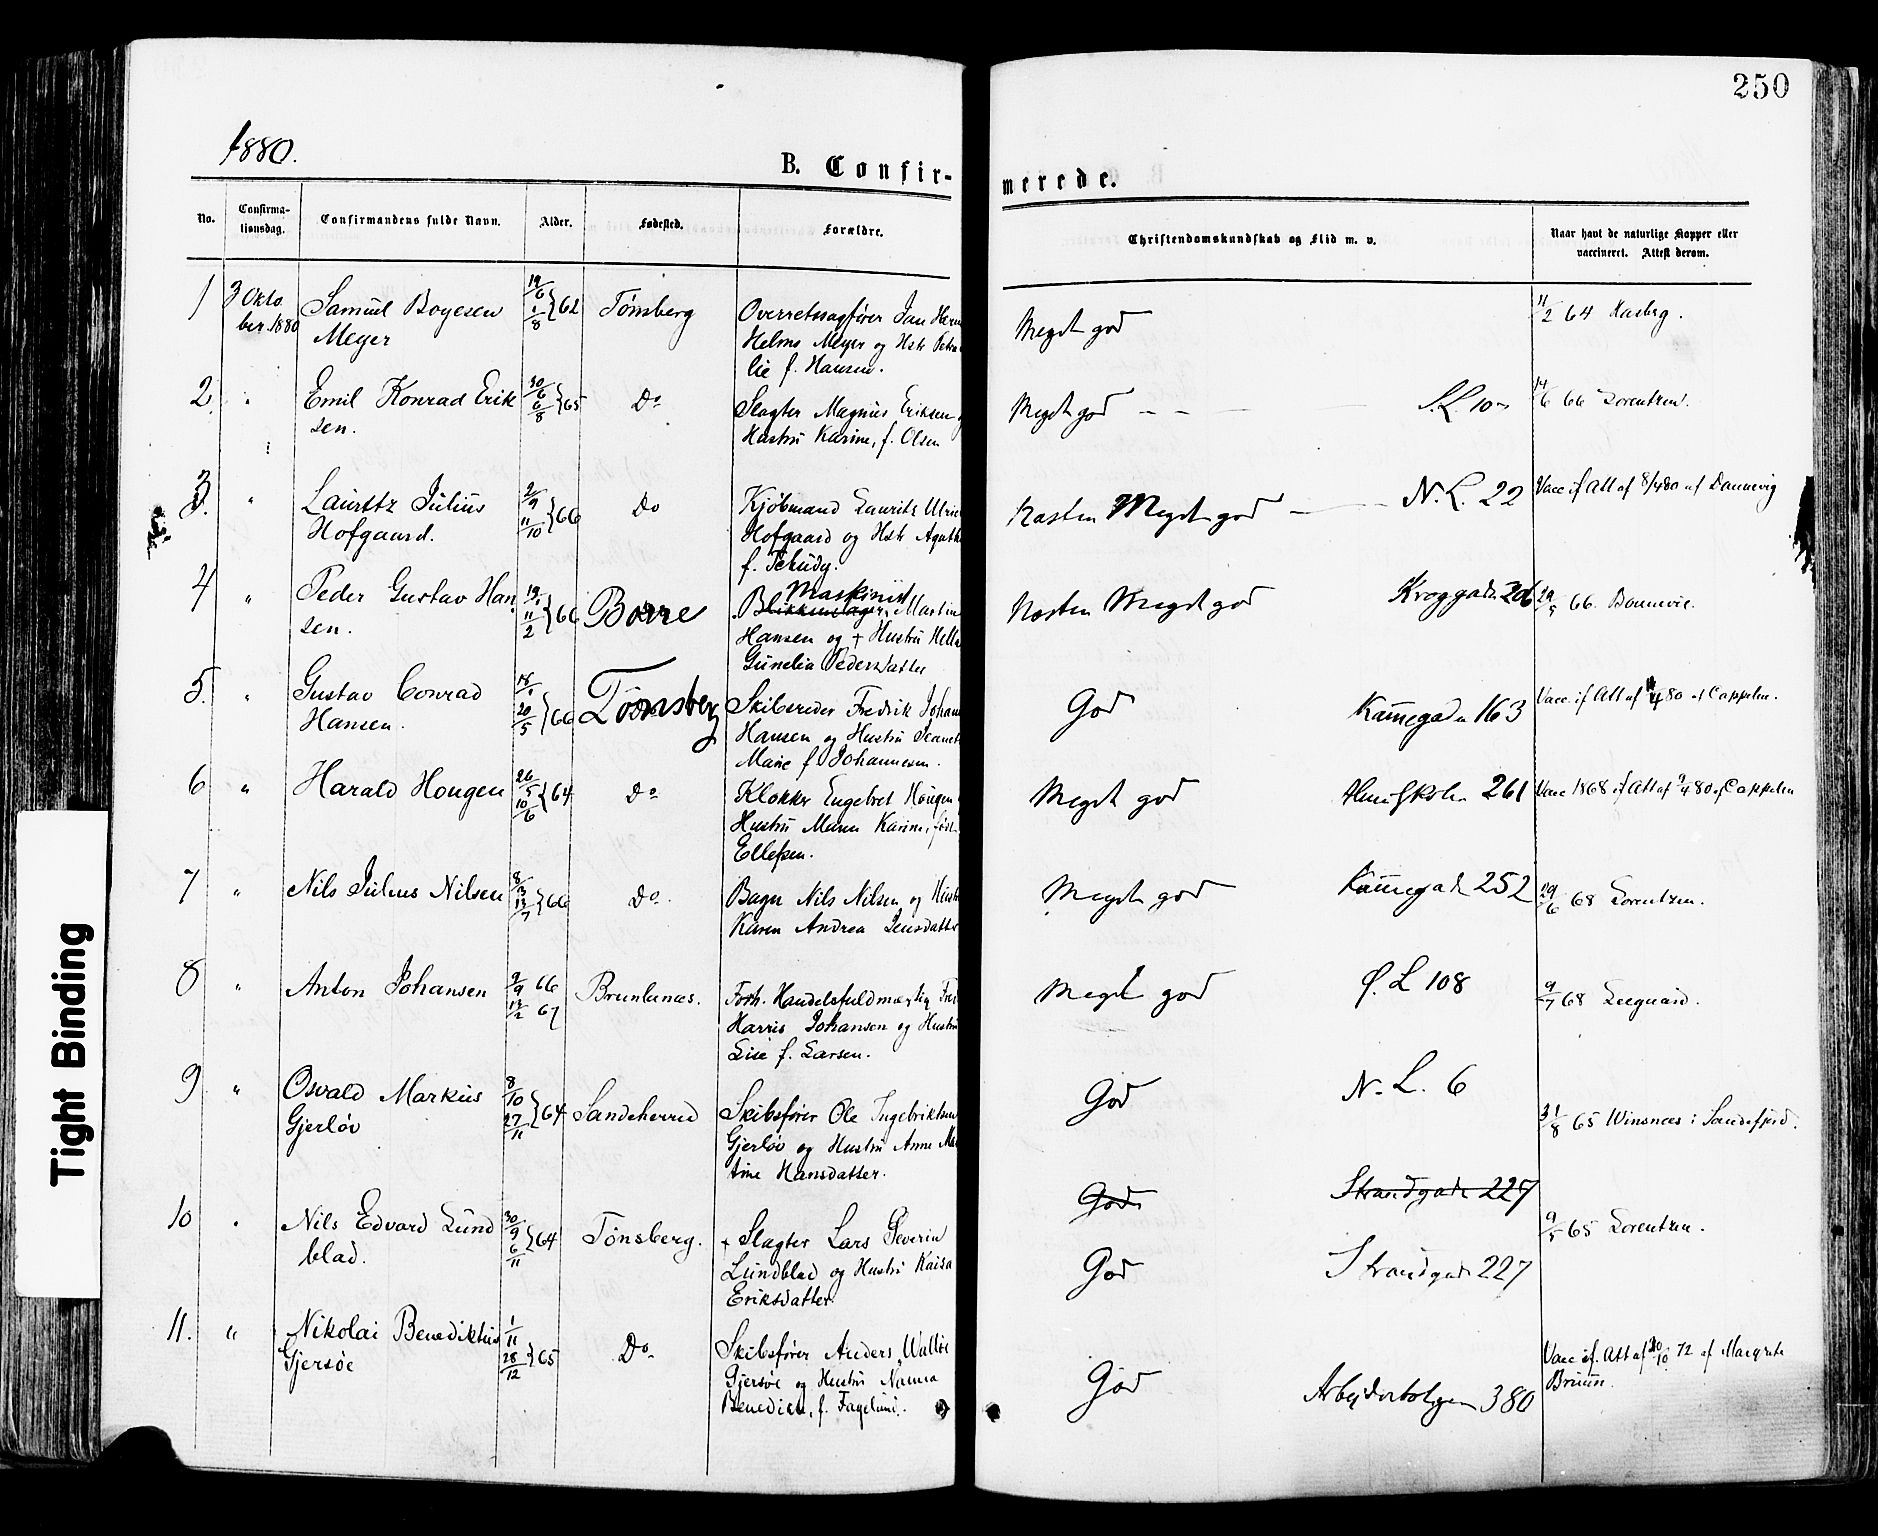 250
1880.
B. Confir-
merede.
No.
Confirma-
tionsdag.
Confirmandens fulde Navn.
Alder.
Fødested.
Forældre.
Christendomskundskab og Flid m. v.
Naar havt de naturlige Kopper eller
vaccineret. Attest derom.
1 3 Okto
ber 1880
Samuel Boyesen
Meyer
1/8 } 62
Tønsberg
Overretssagfører Jan Herm
Helms Meyer og Hstr Petra
lie f. Hansen.
Meget god
11/2 64 Hasberg.
2 "
Emil Konrad Erik
sen.
30/6 6/8 } 65
Do
Slagter Magnus Eriksen
Hustru Karine, f. Olsen
Meget god
S.L. 10
14/6 66 Lorentzen.
3. "
Lauritz Julius
Hofgaard.
2/9 11/10 } 66
Do
Kjøbmand Laurits Ulric
Hofgaard og Hstr Agathe
f. Tschudy.
Næsten Meget god
N.L. 22
Vacc if Att af 8/4 80 af Dannevig
4 "
Peder Gustav Han
sen.
11/2 } 66
Borre
Maskinist
Blikkenslager Martin
Hansen og + Hustru Hella
Gunelia Pedersdatter
Næsten Meget god
Kroggade 206
66. Dannevig.
5. "
Gustav Conrad
Hansen.
18/1 20/5 } 66
Tønsberg
Skibsreder Fredrik Johan
Hansen og Hustru Jeanet
Marie f Johannesen.
God
Kammegaden 163
Vacc. if Att af 4 80 af Cappelen.
6 "
Harald Hougen
26/5 10/6 } 64
Do
Klokker Engebret Hougen
Hustru Maren Karine, fød
Ellefsen.
Meget god
261
Vacc 1868 if Att af 9/4 80 af Cappelen
7 "
Nils Julius Nilsen
13/7 } 66
Do
Bager Nils Nilsen og Hustr
Karen Andrea Jensdatter
Meget god
Kammegade 252
29/6 68 Lorentzen.
8 "
Anton Johansen
9/9 66
12/2 67
Brunlanæs.
Forh. Handelsfuldmægtig Fred
Harris Johansen og Hustru
Lise f. Larsen.
Meget god
Ø. L 108
9/7 68 Leegaard.
9 "
Osvald Markus
Gjerløv
8/10 27/11 } 64
Sandeherred
Skibsfører Ole Ingebriktsen
Gjerløv og Hustru Anne Ma
tine Hansdatter.
God
N. L. 6
31/8 65 Winsnes i Sandefjord.
10 "
Nils Edvard Lund
blad.
30/9 6/11 } 64
Tønsberg.
+ Slagter Lars Severin
Lundblad og Hustru Kaisa
Eriksdatter.
God
Strandgade 227
God
Strandgade 227
9/5 65 Lorentzen.
11. "
Nikolai Benediktus
Gjersøe
1/11 28/12 } 65
Do
Skibsfører Anders Walløe
Gjersøe og Hustru Nanna
Benedicte, f. Fagelund.
God
Arbejderboligen 380
Vacc if. Att af 20/10 72 af Margrete
Bruun.
Tight Binding